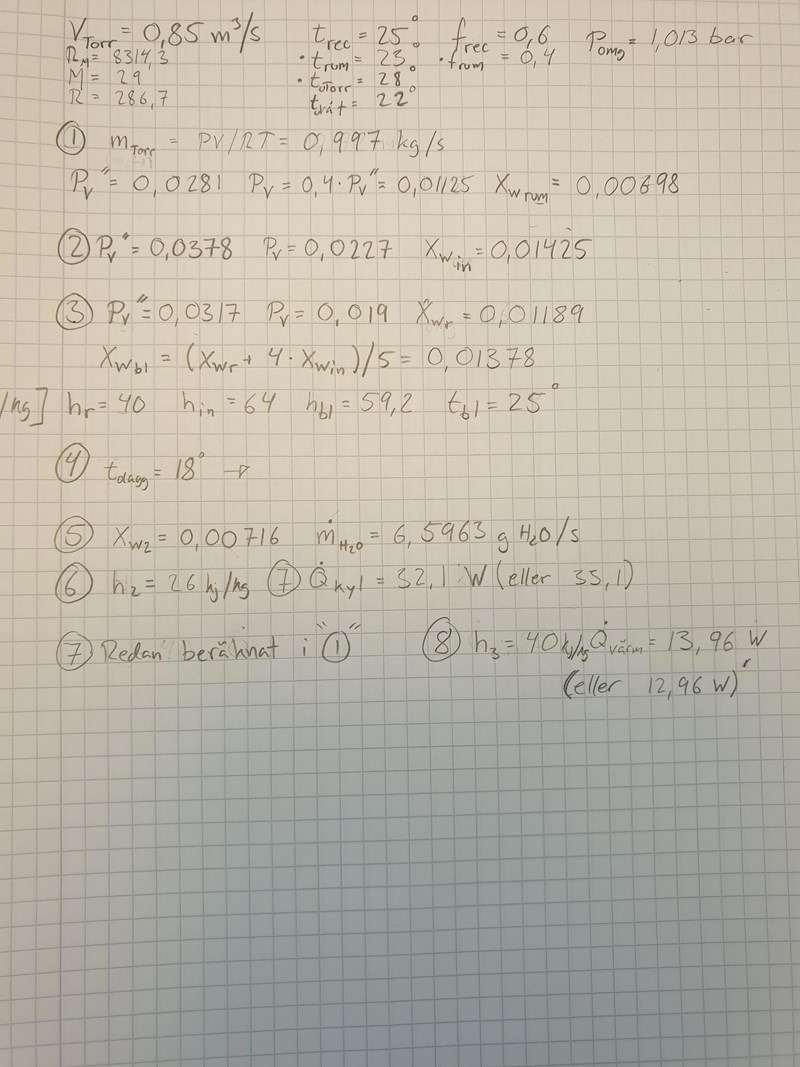 V_Torr = 0,85 m³/s t_rec = 25° f_rec = 0,6 P_omg = 1,013 bar
R_M = 8314,3 • t_rum = 23° • f_rum = 0,4
M = 29 • t_uTorr = 28°
R = 286,7 t_våt = 22°
① m_Torr = PV/RT = 0,997 kg/s
P_v" = 0,0281 P_v = 0,4 · P_v" = 0,01125 X_w rum = 0,00698
② P_v" = 0,0378 P_v = 0,0227 X_w in = 0,01425
③ P_v" = 0,0317 P_v = 0,019 X_wr = 0,01189
X_wbl = (X_wr + 4 · X_win)/5 = 0,01378
/kg] h_r = 40 h_in = 64 h_bl = 59,2 t_bl = 25°
④ t_dagg = 18° →
⑤ X_w2 = 0,00716 ṁ_H2O = 6,5963 g H2O/s
⑥ h_2 = 26 kj/kg ⑦ Q̇_kyl = 32,1 W (eller 33,1)
⑦ Redan beräknat i "①" ⑧ h_3 = 40 kj/kg Q̇_värm = 13,96 W
(eller 12,96 W)